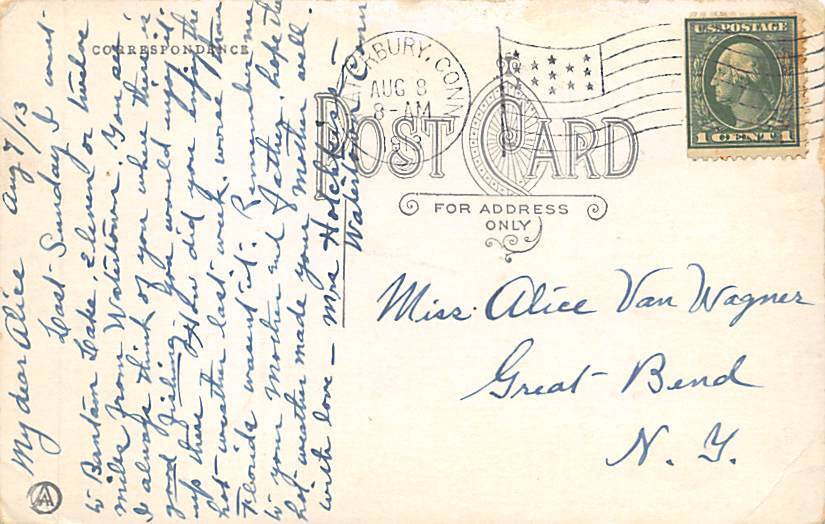 CORRESPONDENCE
My dear Alice Aug 7/13
Last Sunday I went
to Bantam Lake, eleven or twelve
miles from Watertown. You see
I always think of you where there is
good fishing. You would enjoy it
up there. How did you enjoy the
hot weather last week, worse than
Florida wasn't it. Remember me
to your Mother and Father, hope the
hot weather made your Mother well.
with love – Mrs Hotchkiss –
Watertown Conn
WATERBURY, CONN.
AUG 8
8-AM
POST CARD
FOR ADDRESS
ONLY
U.S. POSTAGE
1 CENT 1
Miss Alice Van Wagner
Great Bend
N. Y.